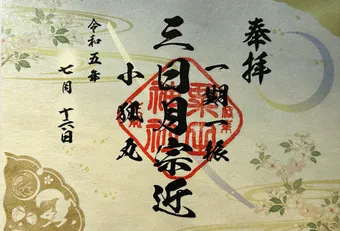 奉拝
一期一振
三日月宗近
粟田
神社
小狐丸
令和五年
七月十六日